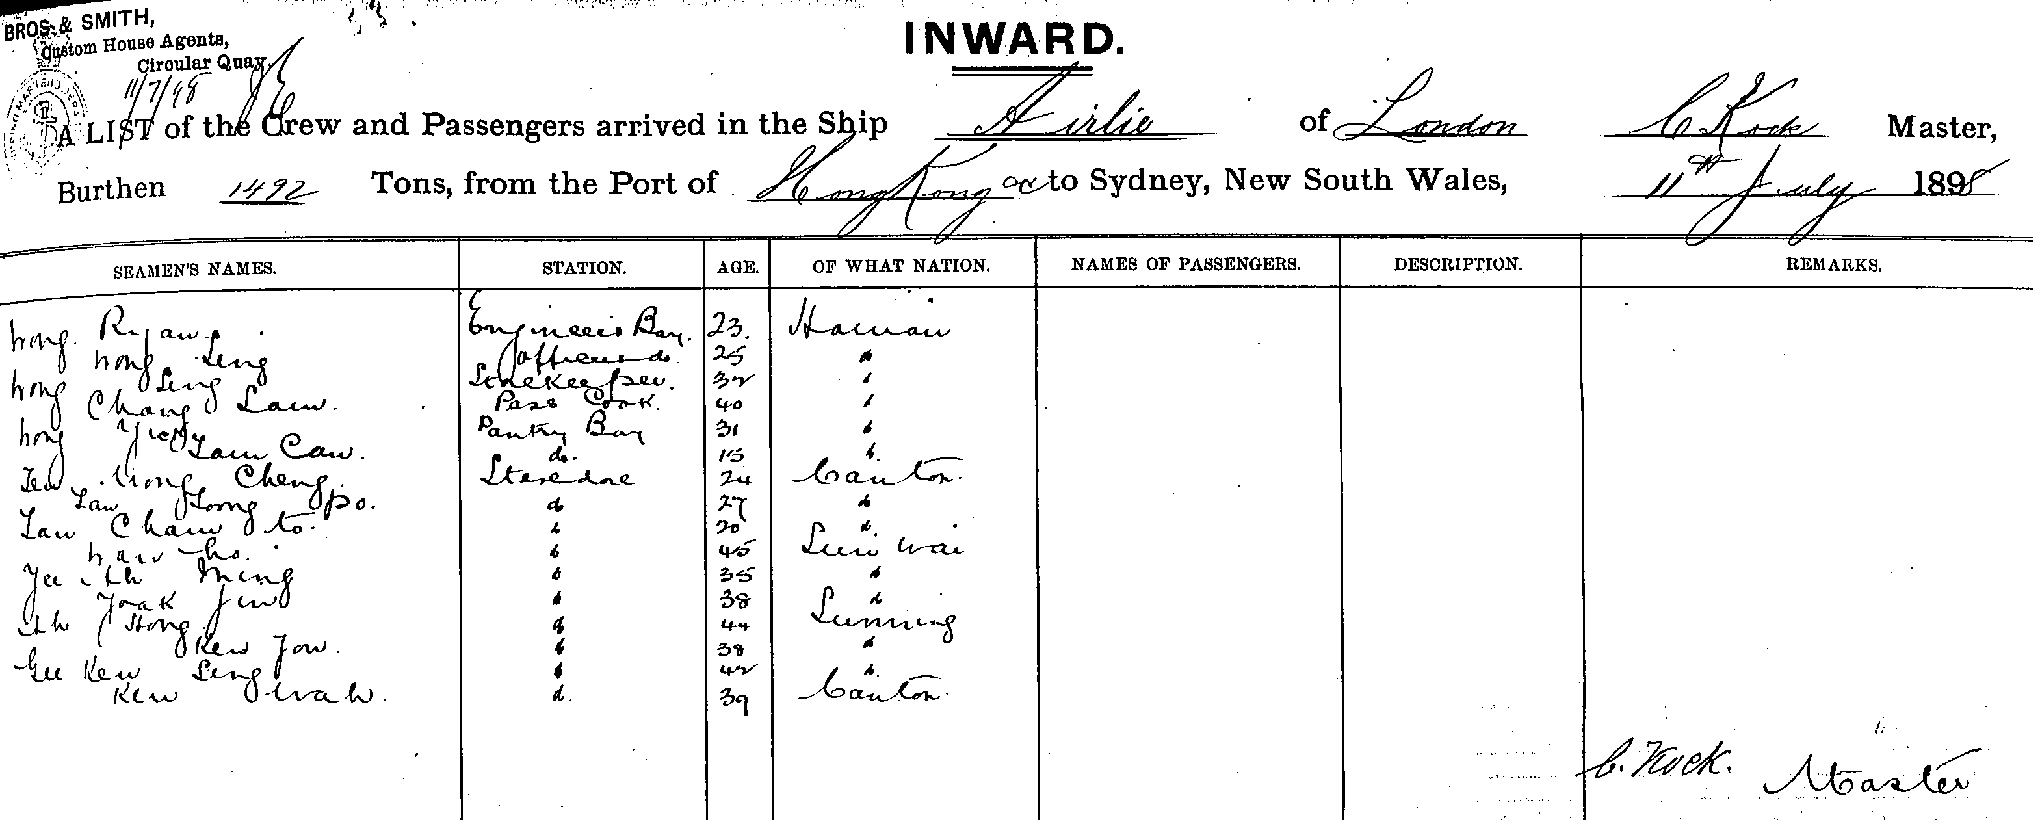 BROS. & SMITH,
Custom House Agents,
Circular Quay,
11/7/98
INWARD.
A LIST of the Crew and Passengers arrived in the Ship Airlie of London C Kock Master,
Burthen 1492 Tons, from the Port of Hong Kong &c to Sydney, New South Wales, 11th July 1898
SEAMEN'S NAMES. STATION. AGE. OF WHAT NATION. NAMES OF PASSENGERS. DESCRIPTION. REMARKS.
Wong Ryan Engineers Boy. 23. Hainan
Wong Seng Officers do. 25 "
Wong Seng Storekeeper. 32 "
Chang Lam. Pass Cook. 40 "
Wong Pantry Boy 31 "
Lam Caw. do. 15 "
Wong Cheng. Stevedore 24 Canton.
Law Hong po. d 27 "
Law Cham to. " 20 "
" 45 Sun Wai
Yee Ah Ming " 35 "
Yoak " 38 "
Ah Hong " 44 Sunning
Kew Jow. " 38 "
Gee Kew Seng " 42 "
Kew Wah. d. 39 Canton.
C. Kock. Master